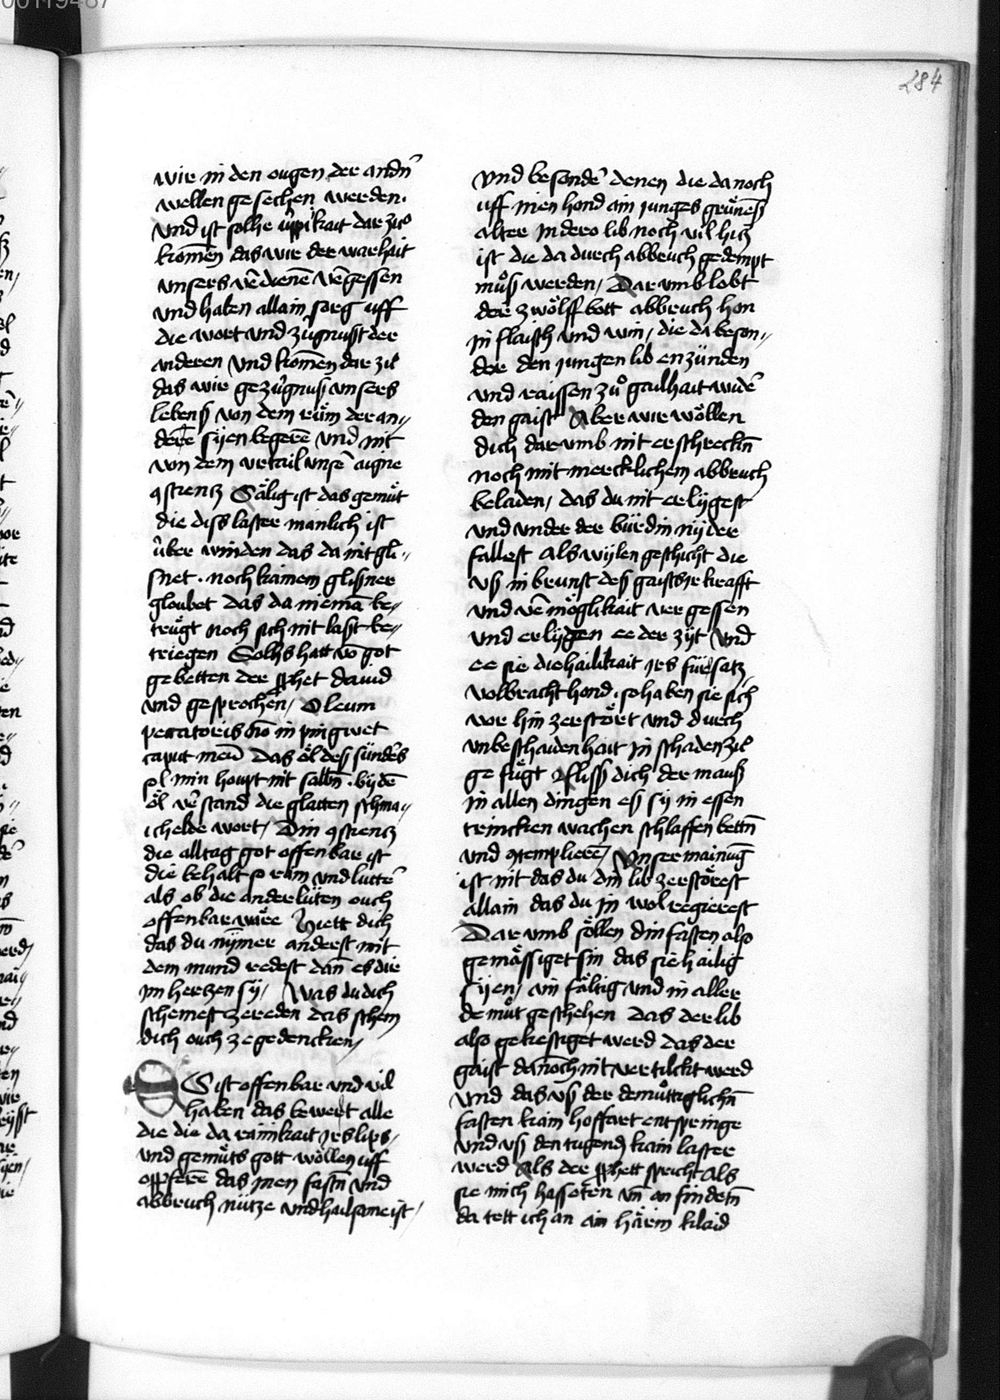 00119487
284
wir in den ougen der andn̄
wellen gesechen werden.
Vnd ist sollhe v̈ppikait dar zů
komē das wir der warhait
vnsers vdienē vgessen
vnd haben allain sorg uff
die wort vnd zügnusst der
anderen Vnd komēn dar zů
das wir gezügnuß vnsers
lebenß von dem rům der an//
derē syen begerē vnd nit
von dem vrtail vnse aigne
9scientz Sälig ist das gemüt
die diss laster manlich ist
über winden das da nit gli//
snet. noch kainem glißner
gloubet das da niemā be//
trügt noch sich nit lasst be//
triegen Solhs hatt vō got
gebetten der pphet dauid
vnd gesprochen/ Oleum
peccatoris nō inpingwet
caput meū Das öl deß sünders
sol min houpt nit salbn. by dē
öl vstand die glatten schma//
ichelde wort/ Din 9scientz
die alltag got offenbar ist
die behalt so rain vnd lutter
als ob die anderlüten ouch
offenbar wäre Hiett dich
das du nȳmer anderst mit
dem mund redest dan es die
im hertzen sy/ Was du dich
schemest ze reden das schem
dich ouch ze gedencken/
ES ist offenbar vnd vil
haben das bewert alle
die die da rainikait irs libs/
vnd gemüts gott wöllen uff
opfferē das inen fastn vnd
abbruch nütze vnd hailsame ist/
Vnd besonde denen die da noch
uff inen hond ain junges grünenß
alter In dero lib noch vil hitz
ist die da durch abbruch gedempt
můß werden/ Dar vmb lobt
der zwölff bott abbruch hon
in flaisch vnd win/ die da beson//
der den jungen lib enzünden
vnd raissen zů gailhait wide
den gaist Aber wir wöllen
dich darvmb nit erschreckn
noch mit mercklichem abbruch
beladen/ das du nit erlygest
vnd vnder der bürdin nyder
fallest Als wylen geschicht die
vß inbrunst deß gaists ir krafft
vnd v möglikait vergessen
vnd erlygen ee der zyt Vnd
ee sie die hailikait irs fürsatz
volbracht hond. so haben sie sich
vor hin zerstört vnd durch
vnbeschaidenhait in schaden zů
gefügt flyß dich der mauß
in allen dingen eß sy in essen
trincken wachen schlaffen bettn
vnd 9templieren/ Vnser mainūg
ist nit das du din lib zerstörest
allain das du in wol regierest
Dar vmb söllen din fasten also
gemässiget sin das sie hailig
syen/ ain fältig vnd in aller
demůt geschehen Das der lib
also gekestiget werd das der
gaist dānoch nit vertilckt werd
vnd das vß der demüttiglichn
fasten kain hoffart entspringe
vnd vß den tugend kain laster
werd Als der pphett spricht Als
sie mich hassoten vn an findetn
da tett ich an ain härin klaid